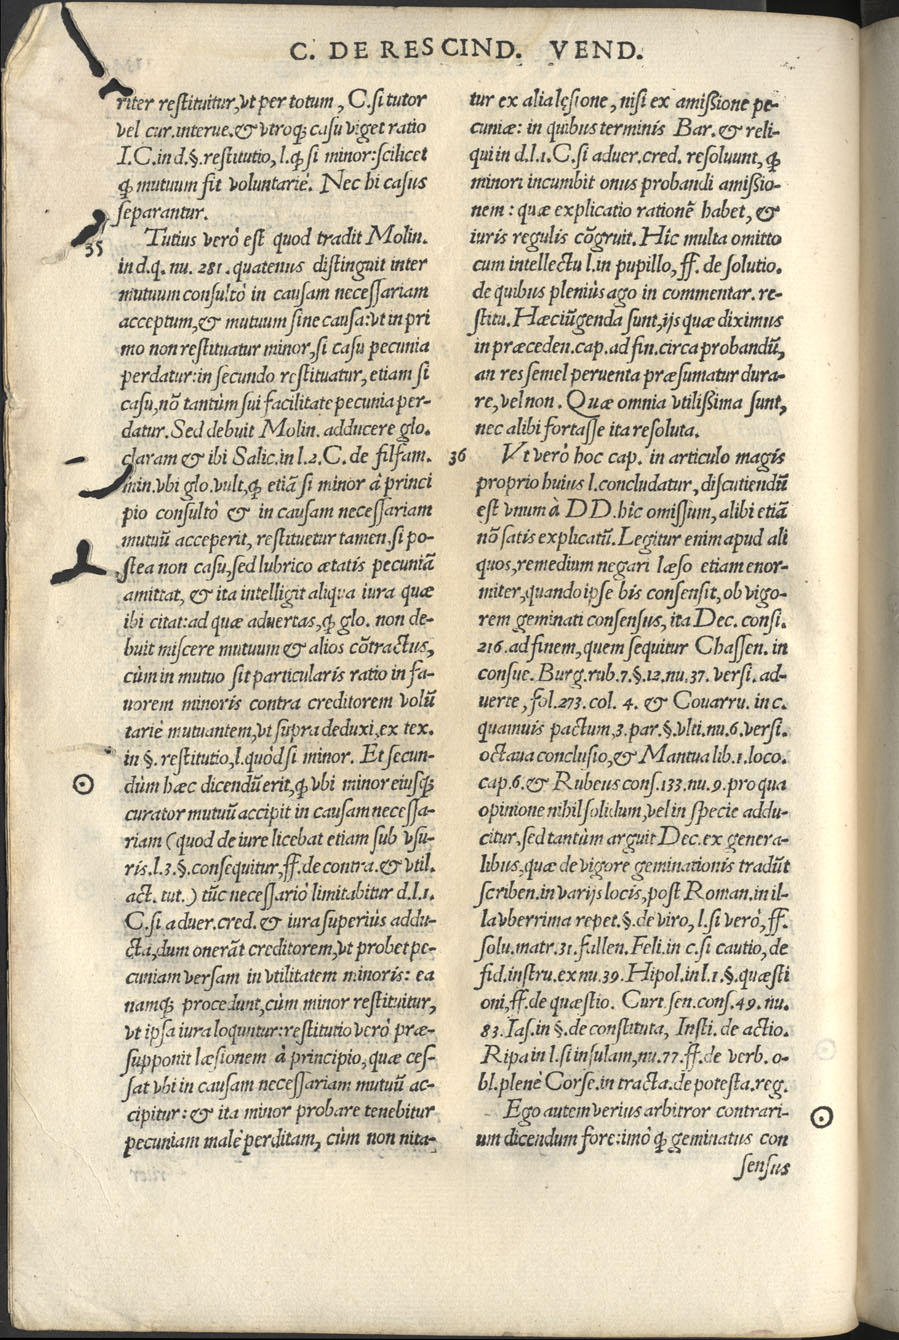 C. DE RESCIND. VEND.
riter restituitur, vt per totum, C. si tutor
vel cur. interue. & vtroq; casu viget ratio
I.C. in d.§. restitutio, l. ꝙ si minor: scilicet
ꝙ mutuum fit voluntariè. Nec hi casus
separantur.
35
Tutius verò est quod tradit Molin.
in d.q. nu. 281. quatenus distinguit inter
mutuum consultò in causam necessariam
acceptum, & mutuum sine causa: vt in pri
mo non restituatur minor, si casu pecunia
perdatur: in secundo restituatur, etiam si
casu, nõ tantùm sui facilitate pecunia per-
datur. Sed debuit Molin. adducere glo.
claram & ibi Salic. in l.2. C. de filfam.
min. vbi glo. vult, ꝙ etiã si minor à princi
pio consultò & in causam necessariam
mutuũ acceperit, restituetur tamen, si po-
stea non casu, sed lubrico ætatis pecuniã
amittat, & ita intelligit aliqua iura quæ
ibi citat: ad quæ aduertas, ꝙ glo. non de-
buit miscere mutuum & alios cõtractus,
cùm in mutuo sit particularis ratio in fa-
uorem minoris contra creditorem volũ
tariè mutuantem, vt supra deduxi, ex tex.
in §. restitutio, l. quòd si minor. Et secun-
dùm hæc dicendũ erit, ꝙ vbi minor eiusq;
curator mutuũ accipit in causam necessa-
riam (quod de iure licebat etiam sub vsu-
ris. l.3.§. consequitur, ff. de contra. & vtil.
act. tut.) tũc necessariò limitabitur d.l.1.
C. si aduer. cred. & iura superiùs addu-
cta, dum onerãt creditorem, vt probet pe-
cuniam versam in vtilitatem minoris: ea
namq; procedunt, cùm minor restituitur,
vt ipsa iura loquuntur: restitutio verò præ-
supponit læsionem à principio, quæ ces-
sat vbi in causam necessariam mutuũ ac-
cipitur: & ita minor probare tenebitur
pecuniam malè perditam, cùm non nita-
tur ex alia lęsione, nisi ex amißione pe-
cuniæ: in quibus terminis Bar. & reli-
qui in d.l.1. C. si aduer. cred. resoluunt, ꝙ
minori incumbit onus probandi amißio-
nem: quæ explicatio rationẽ habet, &
iuris regulis cõgruit. Hic multa omitto
cum intellectu l. in pupillo, ff. de solutio.
de quibus pleniùs ago in commentar. re-
stitu. Hæc iũgenda sunt, ijs quæ diximus
in præceden. cap. ad fin. circa probandũ,
an res semel peruenta præsumatur dura-
re, vel non. Quæ omnia vtilißima sunt,
nec alibi fortasse ita resoluta.
36
Vt verò hoc cap. in articulo magis
proprio huius l. concludatur, discutiendũ
est vnum à DD. hic omissum, alibi etiã
nõ satis explicatũ. Legitur enim apud ali
quos, remedium negari læso etiam enor-
miter, quando ipse bis consensit, ob vigo-
rem geminati consensus, ita Dec. consi.
216. ad finem, quem sequitur Chassen. in
consue. Burg. rub. 7.§.12. nu. 37. versi. ad-
uerte, fol. 273. col. 4. & Couarru. in c.
quamuis pactum, 3. par. §. vlti. nu. 6. versi.
octaua conclusio, & Mantua lib. 1. loco.
cap. 6. & Rubeus cons. 133. nu. 9. pro qua
opinione nihil solidum, vel in specie addu-
citur, sed tantùm arguit Dec. ex genera-
libus, quæ de vigore geminationis tradũt
scriben. in varijs locis, post Roman. in il-
la vberrima repet. §. de viro, l. si verò, ff.
solu. matr. 31. fallen. Feli. in c. si cautio, de
fid. instru. ex nu. 39. Hipol. in l.1.§. quæsti
oni, ff. de quæstio. Curt. sen. cons. 49. nu.
83. Ias. in §. de constituta, Insti. de actio.
Ripa in l. si insulam, nu. 77. ff. de verb. o-
bl. plenè Corse. in tracta. de potesta. reg.
Ego autem verius arbitror contrari-
um dicendum fore: imò ꝙ geminatus con
sensus